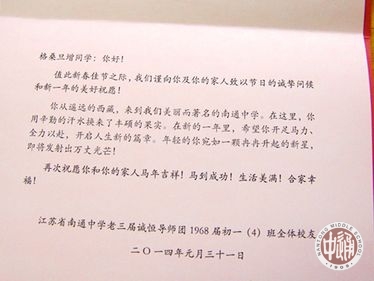 格桑旦增同学：你好！
值此新春佳节之际，我们谨向你及你的家人致以节日的诚挚问候
和新一年的美好祝愿！
你从遥远的西藏，来到我们美丽而著名的南通中学。在这里，你
用辛勤的汗水换来了丰硕的果实。在新的一年里，希望你开足马力、
全力以赴，开启人生新的篇章。年轻的你宛如一颗冉冉升起的新星，
即将发射出万丈光芒！
再次祝愿你和你的家人马年吉祥！马到成功！生活美满！合家幸
福！
江苏省南通中学老三届诚恒导师团 1968 届初一（4）班全体校友
二〇一四年元月三十一日
NANTONG MIDDLE SCHOOL
1909